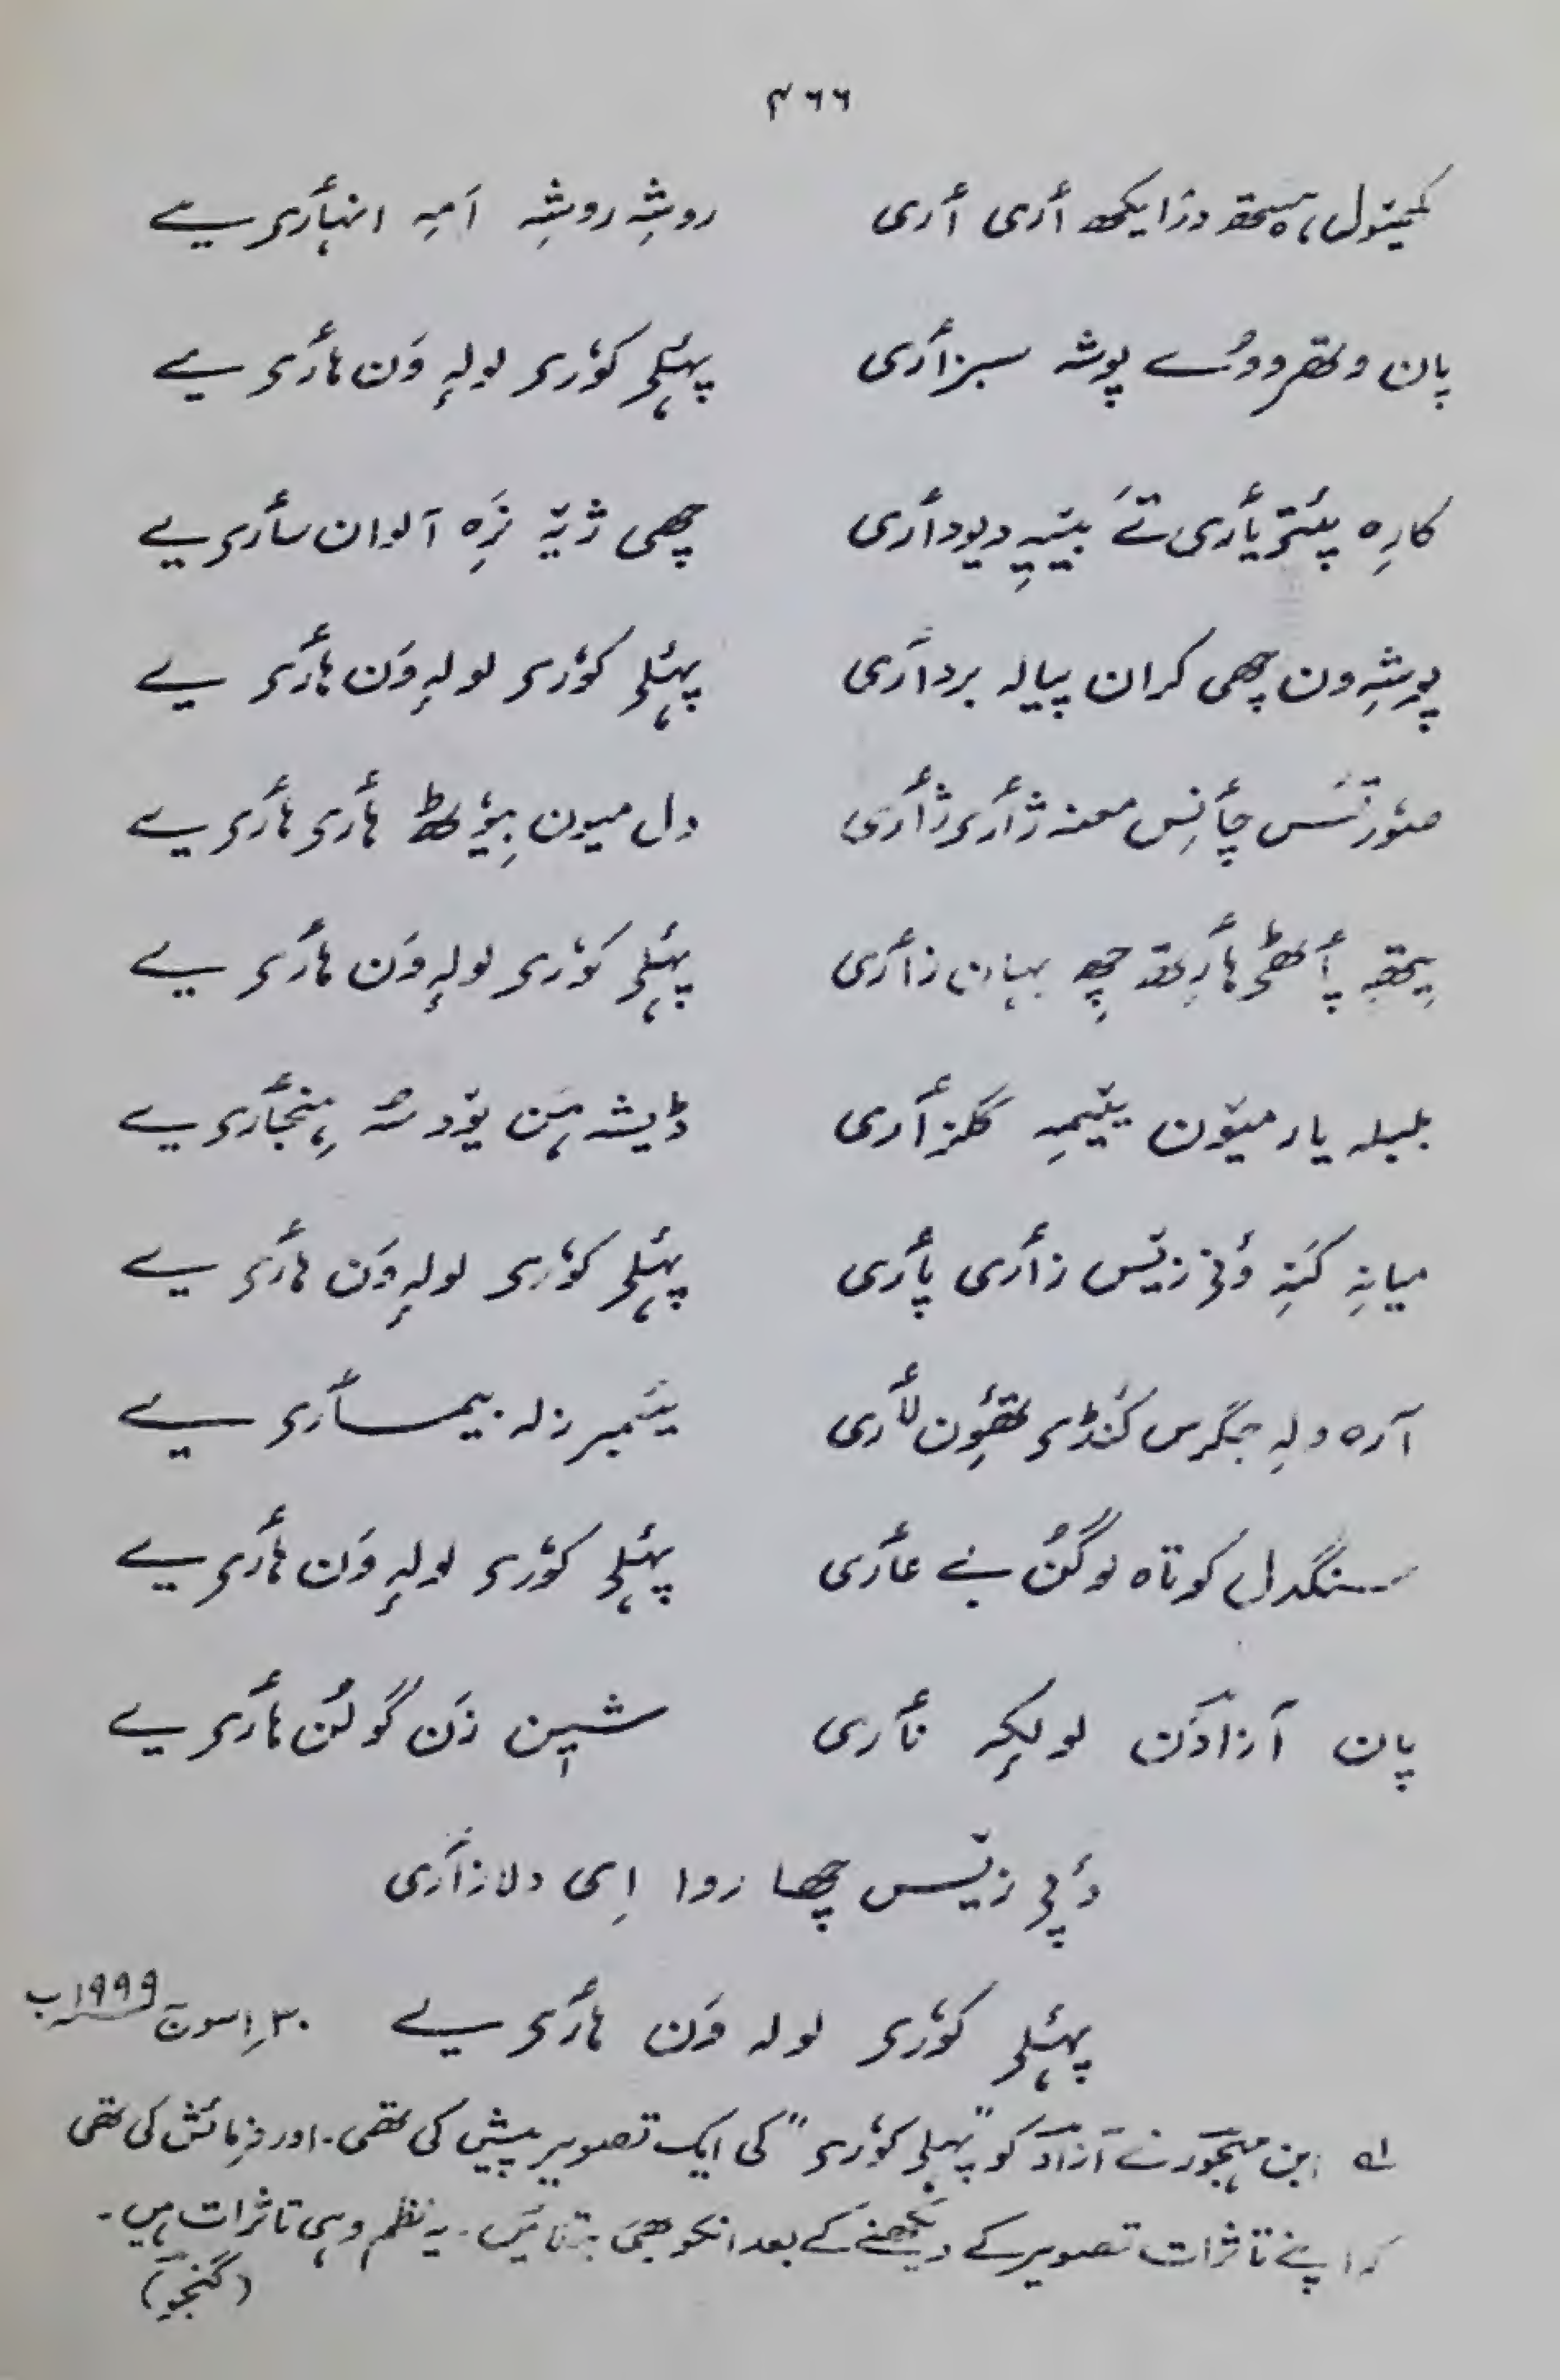 ۴۶۶
کھینول ہیتھ دزایکھ أری أری روشہِ روشہِ اَمہِ انہأری یے
پان وتھرووُے پوشہ سبزأری پہٕلی کوٗری لولہٕ وَن ہأری یے
کارِہ پٔتریأری تَے بییہِ دیودأری چھی ژیہِ نِرہ آلوان سأری یے
پوشہِ ون چھی کران پیالہ بردأری پہٕلی کوٗری لولہٕ وَن ہأری یے
صوٗرتَس چأنِس منز ژأری ژأری دل میون بیوٗٹھ ہأری ہأری یے
یِتھہِ پأٹھی ہأرِتھ چھِ بہان زأری پہٕلی کوٗری لولہٕ وَن ہأری یے
بلبلہ یار میوٚن ییٚمہِ گلزأری ڈیشہ ہن یوٚد سُہ ہِنجأری یے
میانہِ کَنہِ وٕنی زیٚس زأری پأری پہٕلی کوٗری لولہٕ وَن ہأری یے
آرہ ولہِ جگرس کَنڈی تھٔوِن لأری ینٚبرزلہ بیمسأری یے
سنگدل کوتاہ لوگُن بے عأری پہٕلی کوٗری لولہٕ وَن ہأری یے
پان آزادَن لولکہِ نأری شین زَن گولُن ہأری یے
دٔپی زیٚس چھا روا اِی دلازأری
پہٕلی کوٗری لولہ وَن ہأری یے ۳۰؍اسوج ۱۹۹۹ب
لے ابن مہجور نے آزاد کو "پہلی کوٗری" کی ایک تصویر پیش کی تھی۔ اور فرمائش کی تھی
کہ اپنے تاثرات تصویر کے دیکھنے کے بعد انکو بھی بتائیں۔ یہ نظم وہی تاثرات ہیں۔
(گنجو)